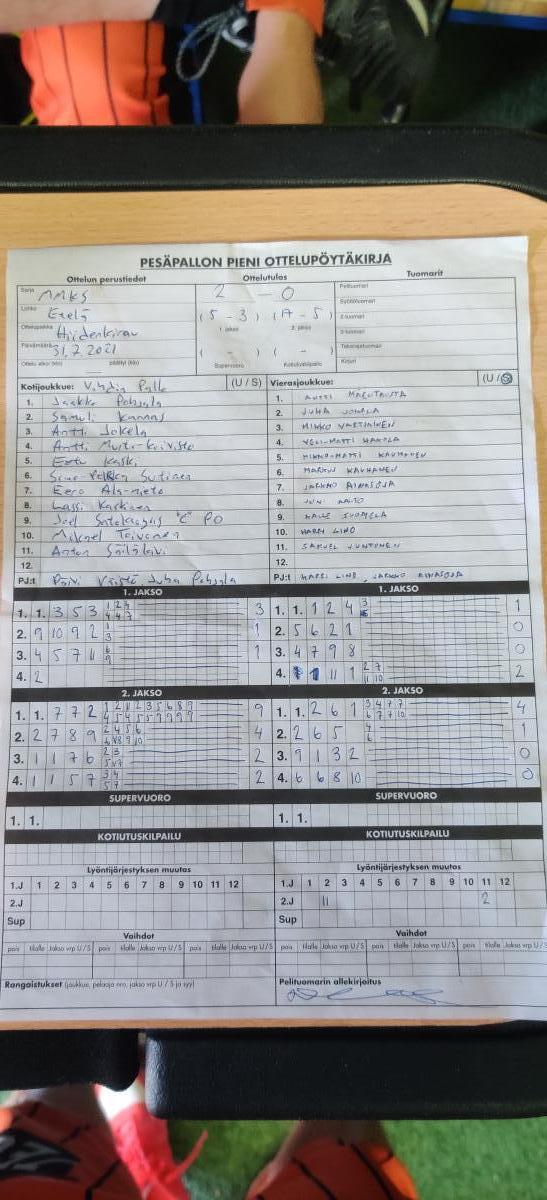 PESÄPALLON PIENI OTTELUPÖYTÄKIRJA
Ottelun perustiedot Ottelutulos Tuomarit
Sarja MMKS
Lohko Etelä
Ottelupaikka Hiidenkirnu
Päivämäärä 31.7.2021
Ottelu alkoi (klo) päättyi (klo)
2 - 0
(5 - 3) (17 - 5)
1. jakso 2. jakso
( - ) ( - )
Supervuoro Kotiutuskilpailu
Pelituomari
Syöttötuomari
2-tuomari
3-tuomari
Takarajatuomari
Kirjuri
Kotijoukkue: Vihdin Pallo (U / S)
1. Jaakko Pohjola
2. Samuli Kannas
3. Antti Jokela
4. Antti Murto-Koivisto
5. Eetu Kaski
6. Simo-Pekka Sutinen
7. Eero Ala-nieto
8. Lassi Karhinen
9. Joel "C" PO
10. Mikael Toivonen
11. Anton
12.
PJ:t Päivi Juha Pohjola
Vierasjoukkue: (U / S)
1. ANTTI
2. JUHA
3. MIKKO VARTIAINEN
4. VELI-MATTI HAKOLA
5. MIKKO-MATTI KAUHANEN
6. MARKUS KAUHANEN
7. JARKKO AINASOJA
8. JONI AALTO
9. KALLE SUOMELA
10. HARRI LIND
11. SAMUEL JUNTUNEN
12.
PJ:t HARRI LIND, JARKKO AINASOJA
1. JAKSO
1. 1. 3 5 3 1 2 3 3
4 4 7
2. 9 10 9 2 1 1
3
3. 4 5 7 11 6 1
9
4. 2
1. JAKSO
1. 1. 1 2 4 3 1
2. 5 6 2 1 0
3. 4 7 9 8 0
4. 1 11 1 2 7 2
11 10
2. JAKSO
1. 1. 7 7 2 1 2 11 2 3 5 6 8 9 9
4 5 4 5 5 7 9 9 9
2. 2 7 8 9 2 4 5 6 4
6 8 9 10
3. 1 1 7 6 2 3 2
5 7
4. 1 1 5 7 3 4 2
5 7
2. JAKSO
1. 1. 2 6 1 3 4 7 7 4
6 7 7 10
2. 2 6 5 4 1
6
3. 9 1 3 2 0
4. 6 6 8 10 0
SUPERVUORO SUPERVUORO
1. 1. 1. 1.
KOTIUTUSKILPAILU KOTIUTUSKILPAILU
Lyöntijärjestyksen muutos Lyöntijärjestyksen muutos
1.J 1 2 3 4 5 6 7 8 9 10 11 12 1.J 1 2 3 4 5 6 7 8 9 10 11 12
2.J 2.J 11 2
Sup Sup
Vaihdot Vaihdot
pois tilalle Jakso vrp U / S pois tilalle Jakso vrp U / S pois tilalle Jakso vrp U / S pois tilalle Jakso vrp U / S
Rangaistukset (joukkue, pelaaja nro, jakso vrp U / S ja syy) Pelituomarin allekirjoitus